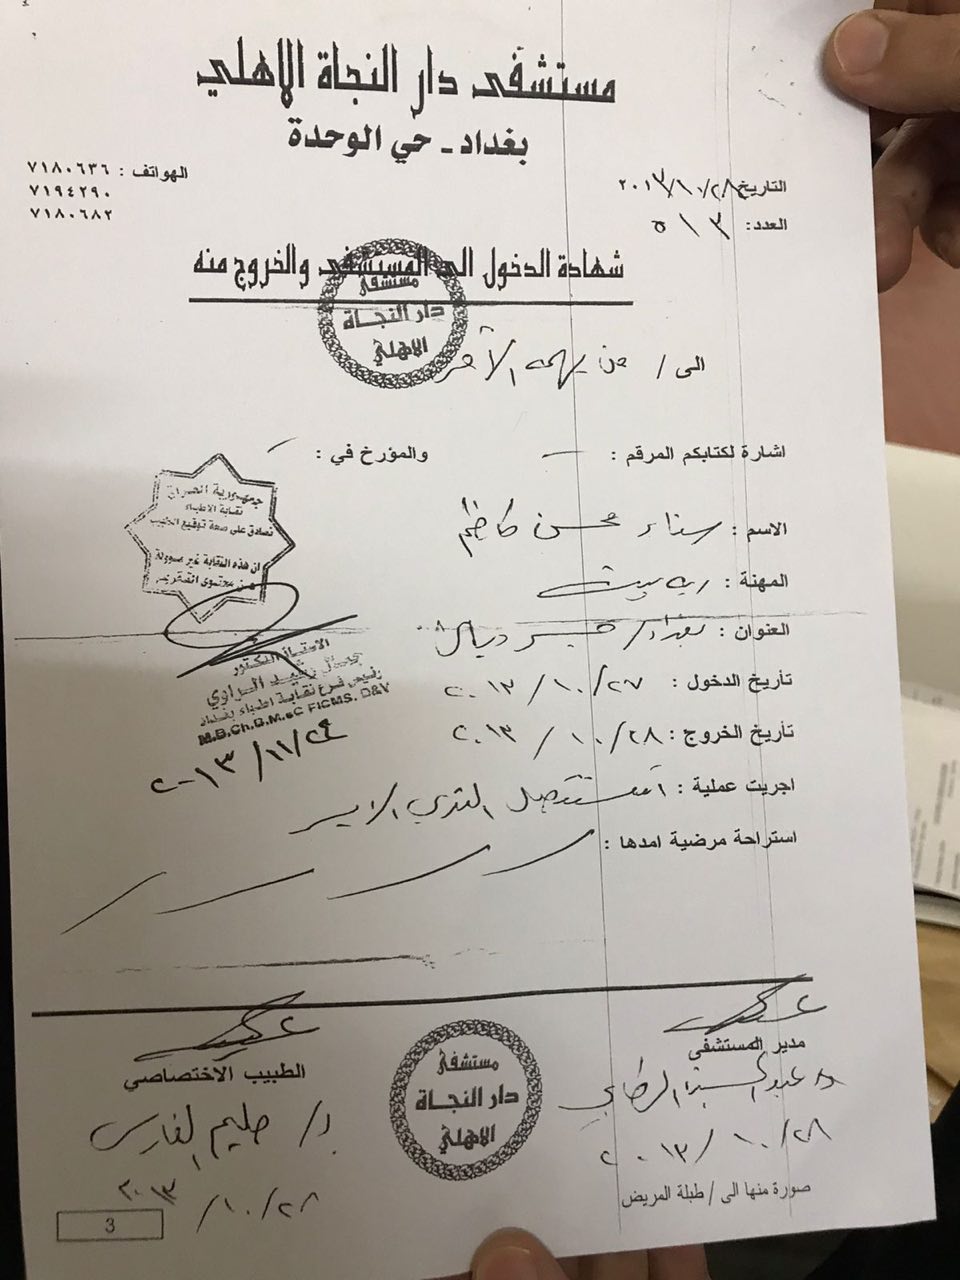 مستشفى دار النجاة الاهلي
بغداد - حي الوحدة
الهواتف : ٧١٨٠٦٣٦
٧١٩٤٢٩٠
٧١٨٠٦٨٢
التاريخ ٢٠١٣/١٠/٢٨
العدد: ٥١٣
شهادة الدخول الى المستشفى والخروج منه
مستشفى
دار النجاة
الاهلي
الى / من يهمه الأمر
اشارة لكتابكم المرقم : والمؤرخ في :
جمهورية العراق
نقابة الاطباء
نصادق على صحة توقيع الطبيب
ان هذه النقابة غير مسؤولة
عن محتوى التقرير
الاسم : سناء محسن كاظم
المهنة : ربة بيت
العنوان : بغداد / جسر ديالى
تأريخ الدخول : ٢٠١٣/١٠/٢٧
تأريخ الخروج : ٢٠١٣/١٠/٢٨
الاستاذ الدكتور
الراوي
رئيس فرع نقابة اطباء بغداد
M.B.Ch.B.M.sC FICMS. D&V
٢٠١٣/١١/٢٤
اجريت عملية : استئصال الثدي الايسر
استراحة مرضية امدها :
مدير المستشفى
د. عبد
٢٠١٣/١٠/٢٨
صورة منها الى / طبلة المريض
مستشفى
دار النجاة
الاهلي
الطبيب الاختصاصي
د/ حليم الفارس
٢٠١٣/١٠/٢٨
3